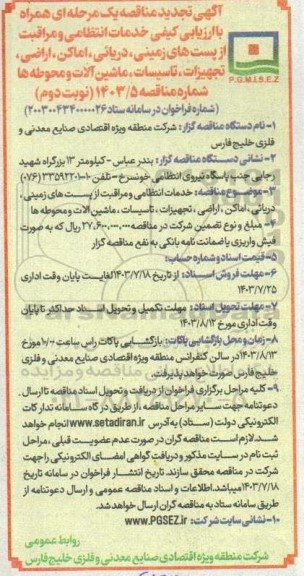 آگهی تجدید مناقصه یک مرحله ای همراه
با ارزیابی کیفی خدمات انتظامی و مراقبت
از پست های زمینی، دریائی، اماکن، اراضی،
تجهیزات، تاسیسات، ماشین آلات و محوطه ها
شماره مناقصه ۱۴۰۳/۵ (نوبت دوم)
P.G.M.I.S.E.Z
(شماره فراخوان در سامانه ستاد ۲۰۰۳۰۰۴۳۴۰۰۰۰۰۲۶)
۱- نام دستگاه مناقصه گزار: شرکت منطقه ویژه اقتصادی صنایع معدنی و
فلزی خلیج فارس
۲- نشانی دستگاه مناقصه گزار: بندر عباس - کیلومتر ۱۳ بزرگراه شهید
رجایی جنب پاسگاه نیروی انتظامی خونسرخ - تلفن ۱۰-۳۳۵۹۲۲۰۱ (۰۷۶)
۳- موضوع مناقصه: خدمات انتظامی و مراقبت از پست های زمینی،
دریائی، اماکن، اراضی، تجهیزات، تاسیسات، ماشین آلات و محوطه ها
۴- مبلغ و نوع تضمین شرکت در مناقصه: ۲۷,۶۰۰,۰۰۰,۰۰۰ ریال که به صورت
فیش واریزی یا ضمانت نامه بانکی به نفع مناقصه گزار
۵- قیمت اسناد و شماره حساب:
۶- مهلت فروش اسناد: از تاریخ ۱۴۰۳/۷/۱۸ لغایت پایان وقت اداری
۱۴۰۳/۷/۲۵
۷- مهلت تحویل اسناد: مهلت تکمیل و تحویل اسناد حداکثر تا پایان
وقت اداری مورخ ۱۴۰۳/۸/۱۲
۸- زمان و محل بازگشایی پاکات: بازگشایی پاکات راس ساعت ۱۰/۰۰ مورخ
۱۴۰۳/۸/۱۳ در سالن کنفرانس منطقه ویژه اقتصادی صنایع معدنی و فلزی
خلیج فارس صورت خواهد پذیرفت.
۹- کلیه مراحل برگزاری فراخوان از دریافت و تحویل اسناد مناقصه تا ارسال
دعوتنامه جهت سایر مراحل مناقصه، از طریق درگاه سامانه تدارکات
الکترونیکی دولت (ستاد) به آدرس www.setadiran.ir انجام خواهد
شد. لازم است مناقصه گران در صورت عدم عضویت قبلی، مراحل
ثبت نام در سایت مذکور و دریافت گواهی امضای الکترونیکی را جهت
شرکت در مناقصه محقق سازند. تاریخ انتشار فراخوان در سامانه تاریخ
۱۴۰۳/۷/۱۸ میباشد. اطلاعات و اسناد مناقصه عمومی و ارسال دعوتنامه از
طریق سامانه ستاد به مناقصه گران ارسال خواهد شد.
۱۰- نشانی سایت شرکت: www.PGSEZ.ir
روابط عمومی
شرکت منطقه ویژه اقتصادی صنایع معدنی و فلزی خلیج فارس